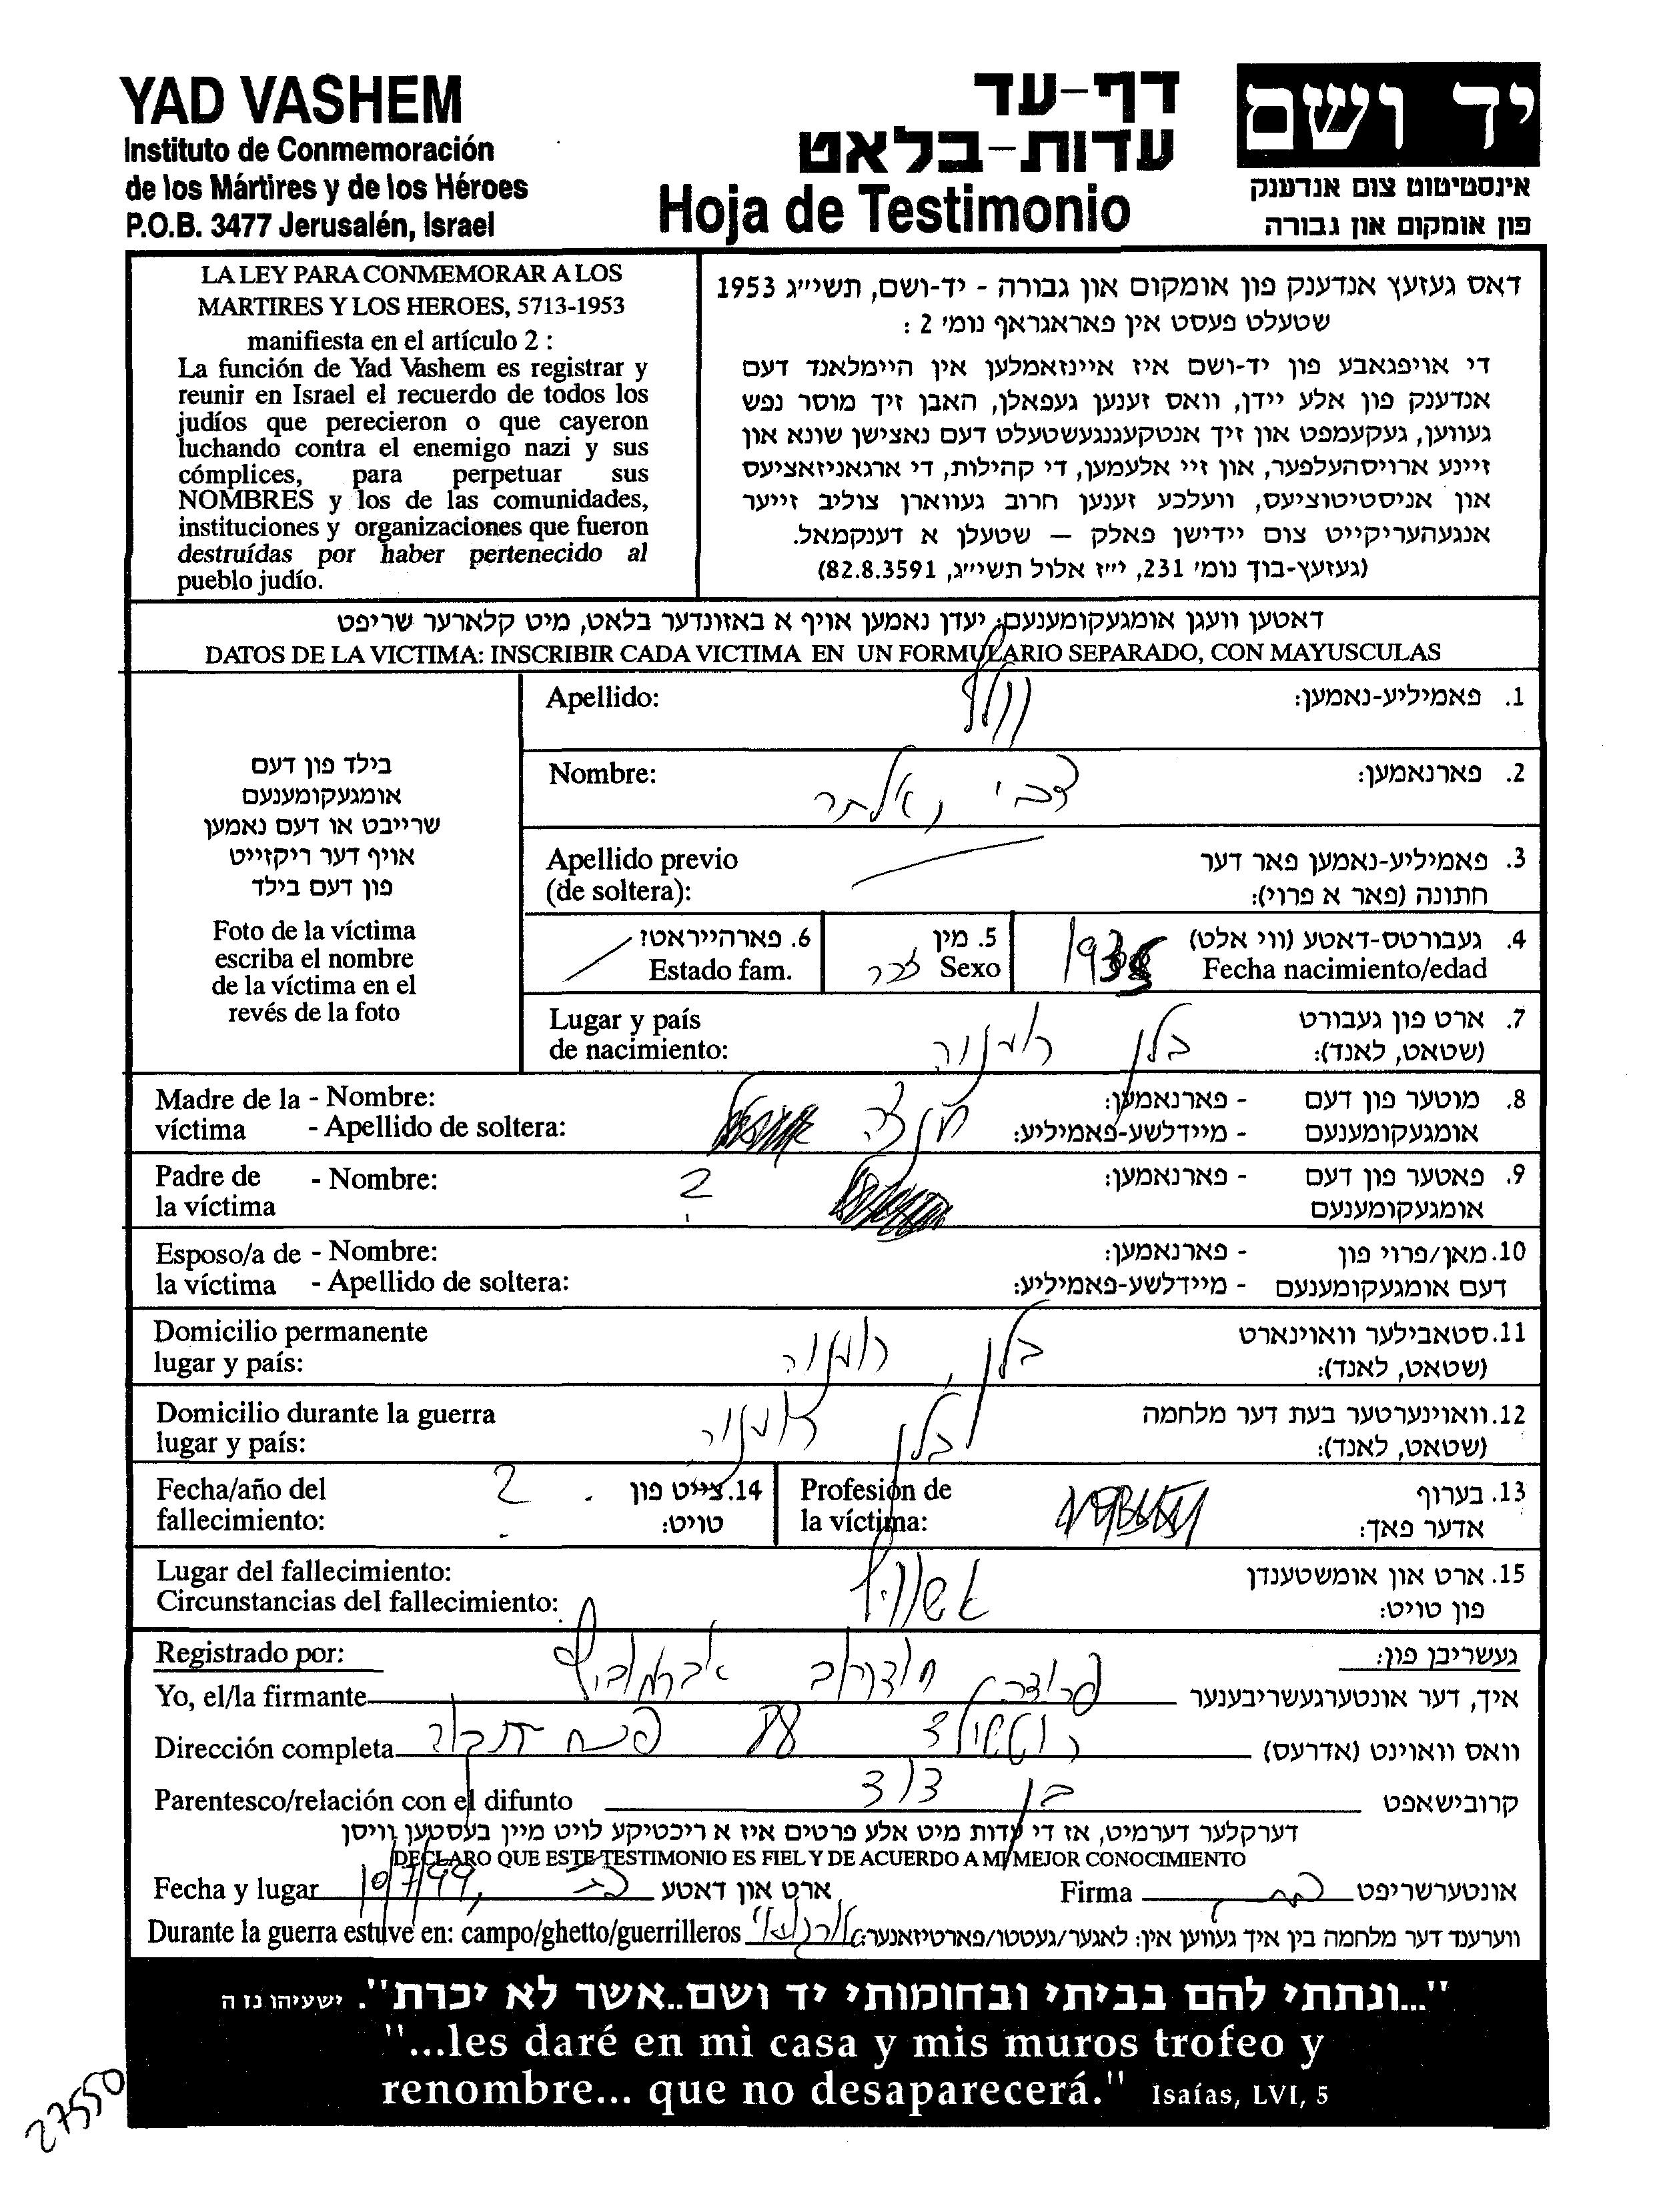 YAD VASHEM
Instituto de Conmemoración
de los Mártires y de los Héroes
P.O.B. 3477 Jerusalén, Israel
דף-עד
עדות-בלאט
Hoja de Testimonio
יד ושם
אינסטיטוט צום אנדענק
פון אומקום און גבורה
LA LEY PARA CONMEMORAR A LOS
MARTIRES Y LOS HEROES, 5713-1953
manifiesta en el artículo 2 :
La función de Yad Vashem es registrar y
reunir en Israel el recuerdo de todos los
judíos que perecieron o que cayeron
luchando contra el enemigo nazi y sus
cómplices, para perpetuar sus
NOMBRES y los de las comunidades,
instituciones y organizaciones que fueron
destruídas por haber pertenecido al
pueblo judío.
דאס געזעץ אנדענק פון אומקום און גבורה - יד-ושם, תשי״ג 1953
שטעלט פעסט אין פאראגראף נומ׳ 2 :
די אויפגאבע פון יד-ושם איז איינזאמלען אין היימלאנד דעם
אנדענק פון אלע יידן, וואס זענען געפאלן, האבן זיך מוסר נפש
געווען, געקעמפט און זיך אנטקעגנגעשטעלט דעם נאצישן שונא און
זיינע ארויסהעלפער, און זיי אלעמען, די קהילות, די ארגאניזאציעס
און אניסטיטוציעס, וועלכע זענען חרוב געווארן צוליב זייער
אנגעהעריקייט צום יידישן פאלק — שטעלן א דענקמאל.
(געזעץ-בוך נומ׳ 231, י״ז אלול תשי״ג, 82.8.3591)
דאטען וועגן אומגעקומענעם: יעדן נאמען אויף א באזונדער בלאט, מיט קלארער שריפט
DATOS DE LA VICTIMA: INSCRIBIR CADA VICTIMA EN UN FORMULARIO SEPARADO, CON MAYUSCULAS
בילד פון דעם
אומגעקומענעם
שרייבט או דעם נאמען
אויף דער ריקזייט
פון דעם בילד
Foto de la víctima
escriba el nombre
de la víctima en el
revés de la foto
Apellido: וולף 1. פאמיליע-נאמען:
Nombre: צבי 2. פארנאמען:
Apellido previo 3. פאמיליע-נאמען פאר דער
(de soltera): חתונה (פאר א פרוי):
6. פארהייראט? 5. מין 4. געבורטס-דאטע (ווי אלט)
Estado fam. זכר Sexo Fecha nacimiento/edad
Lugar y país 7. ארט פון געבורט
de nacimiento: רומניה (שטאט, לאנד):
Madre de la - Nombre: - פארנאמען: 8. מוטער פון דעם
víctima - Apellido de soltera: - מיידלשע-פאמיליע: אומגעקומענעם
Padre de - Nombre: ? - פארנאמען: 9. פאטער פון דעם
la víctima אומגעקומענעם
Esposo/a de - Nombre: - פארנאמען: 10. מאן/פרוי פון
la víctima - Apellido de soltera: - מיידלשע-פאמיליע: דעם אומגעקומענעם
Domicilio permanente 11. סטאבילער וואוינארט
lugar y país: רומניה (שטאט, לאנד):
Domicilio durante la guerra 12. וואוינערטער בעת דער מלחמה
lugar y país: רומניה (שטאט, לאנד):
Fecha/año del ? 14. צייט פון Profesión de 13. בערוף
fallecimiento: טויט: la víctima: אדער פאך:
Lugar del fallecimiento: 15. ארט און אומשטענדן
Circunstancias del fallecimiento: אשוויץ פון טויט:
Registrado por: געשריבן פון:
Yo, el/la firmante אברמוביץ איך, דער אונטערגעשריבענער
Dirección completa רוטשילד פתח תקוה וואס וואוינט (אדרעס)
Parentesco/relación con el difunto בן דוד קרובישאפט
דערקלער דערמיט, אז די עדות מיט אלע פרטים איז א ריכטיקע לויט מיין בעסטען וויסן
DECLARO QUE ESTE TESTIMONIO ES FIEL Y DE ACUERDO A MI MEJOR CONOCIMIENTO
Fecha y lugar 10/7/99, ארט און דאטע Firma אונטערשריפט
Durante la guerra estuve en: campo/ghetto/guerrilleros ווערענד דער מלחמה בין איך געווען אין: לאגער/געטטו/פארטיזאנער:
"...ונתתי להם בביתי ובחומותי יד ושם..אשר לא יכרת". ישעיהו נז ה
"...les daré en mi casa y mis muros trofeo y
renombre... que no desaparecerá." Isaías, LVI, 5
27550